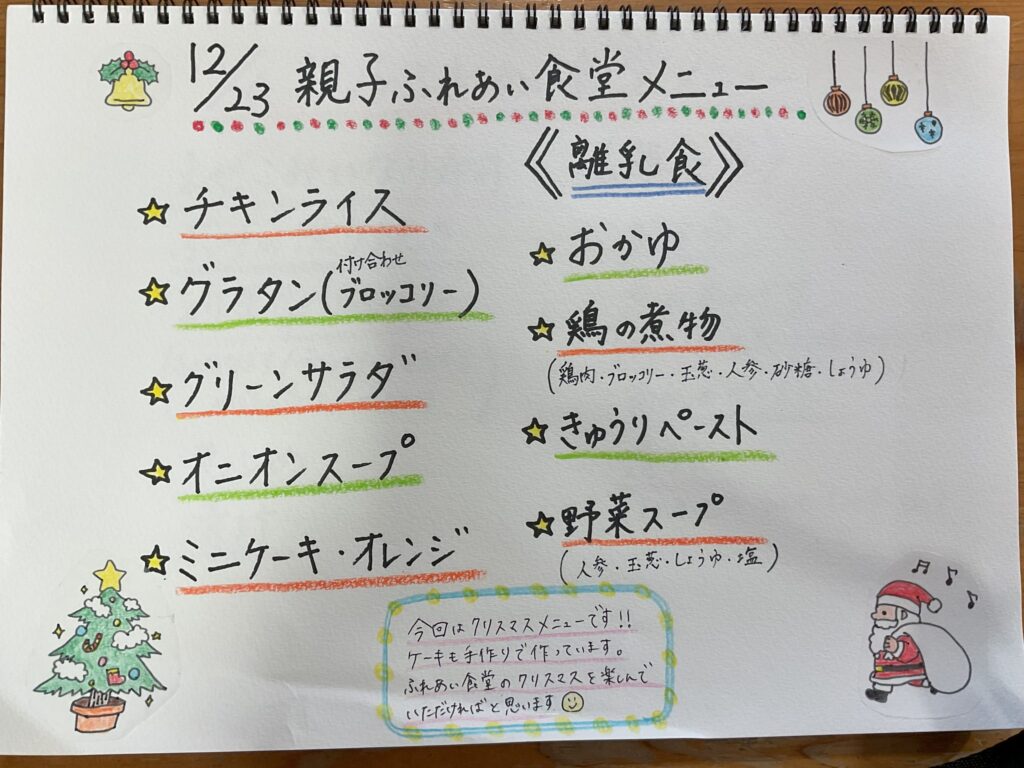 12/23 親子ふれあい食堂メニュー
チキンライス
付け合わせ
グラタン(ブロッコリー)
グリーンサラダ
オニオンスープ
ミニケーキ・オレンジ
《離乳食》
おかゆ
鶏の煮物
(鶏肉・ブロッコリー・玉葱・人参・砂糖・しょうゆ)
きゅうりペースト
野菜スープ
(人参・玉葱・しょうゆ・塩)
今回はクリスマスメニューです!!
ケーキも手作りで作っています。
ふれあい食堂のクリスマスを楽しんで
いただければと思います